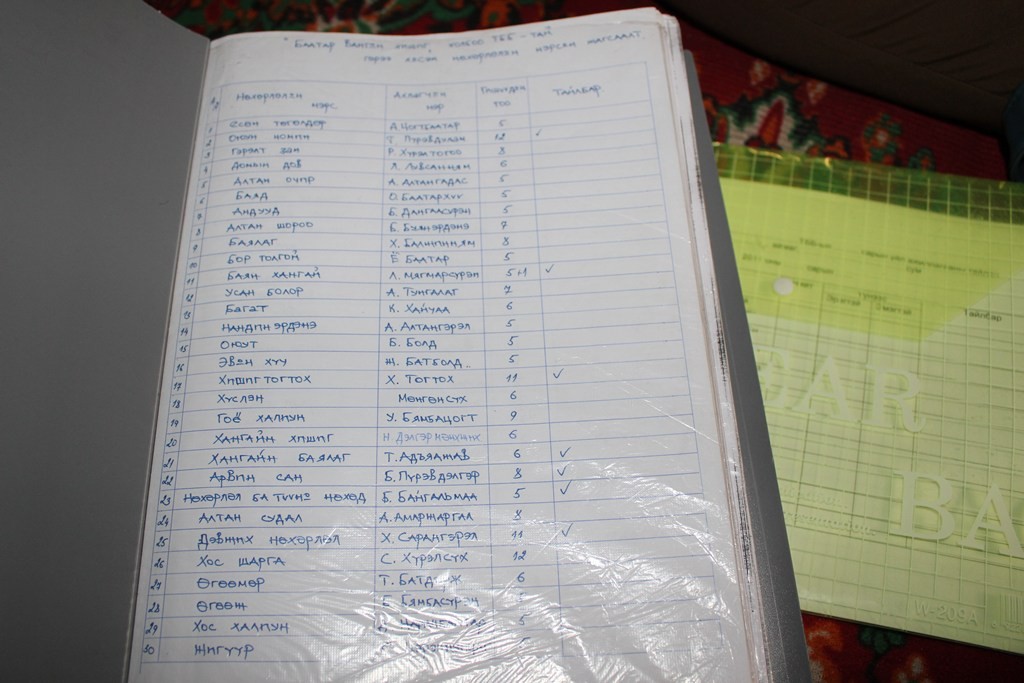 "Баатар Вангын хишиг" холбоо ТББ-тай
гэрээ хийсэн нөхөрлөлийн нэрсийн жагсаалт.
Нөхөрлөлийн нэрс Ахлагчийн нэр Гишүүдийн тоо Тайлбар
1 Есөн төгөлдөр А.Цогтбаатар 5
2 Оюун номин Т. Пүрэвдулам 12 ✓
3 Гэрэлт зам Р. Хүрэлтогоо 8
4 Доным дов Л. Лувсанцям 6
5 Алтан очир А. Алтангадас 5
6 Баяд О. Баатархүү 5
7 Андууд Б. Дангаасүрэн 5
8 Алтан шороо Б. Буянэрдэнэ 7
9 Баялаг Х. Балжинням 8
10 Бор толгой Ё Баатар 5
11 Баян хангай Л. Магмарсүрэн 5+1 ✓
12 Усан болор А. Тунгалаг 7
13 Багат К. Хайчаа 6
14 Нандинэрдэнэ А. Алтангэрэл 5
15 Оюут Б. Болд 5
16 Эвийн хүү Ж. Батболд 5
17 Хишигтогтох Х. Тогтох 11 ✓
18 Хүслэн Мөнгөнсүх 6
19 Гоё халиун У. Бямбацогт 9
20 Хангайн хишиг Н. Дэлгэрмөнхийх 6
21 Хангайн баялаг Т. Адъяажав 6 ✓
22 Арвин сан Б. Пүрэвдэлгэр 8 ✓
23 Нөхөрлөл ба түүний нөхөд Б. Байгальмаа 5 ✓
24 Алтан судал Д. Амаржаргал 8
25 Дэвжих нөхөрлөл Х. Сарангэрэл 11 ✓
26 Хос шарга С. Хүрэлсүх 12
27 Өгөөмөр Т. Батдорж 6
28 Өгөөж Б Бямбасүрэн
29 Хос халиун 5
30 Жигүүр 5
Тайлбар
EAR
BA
W-209A